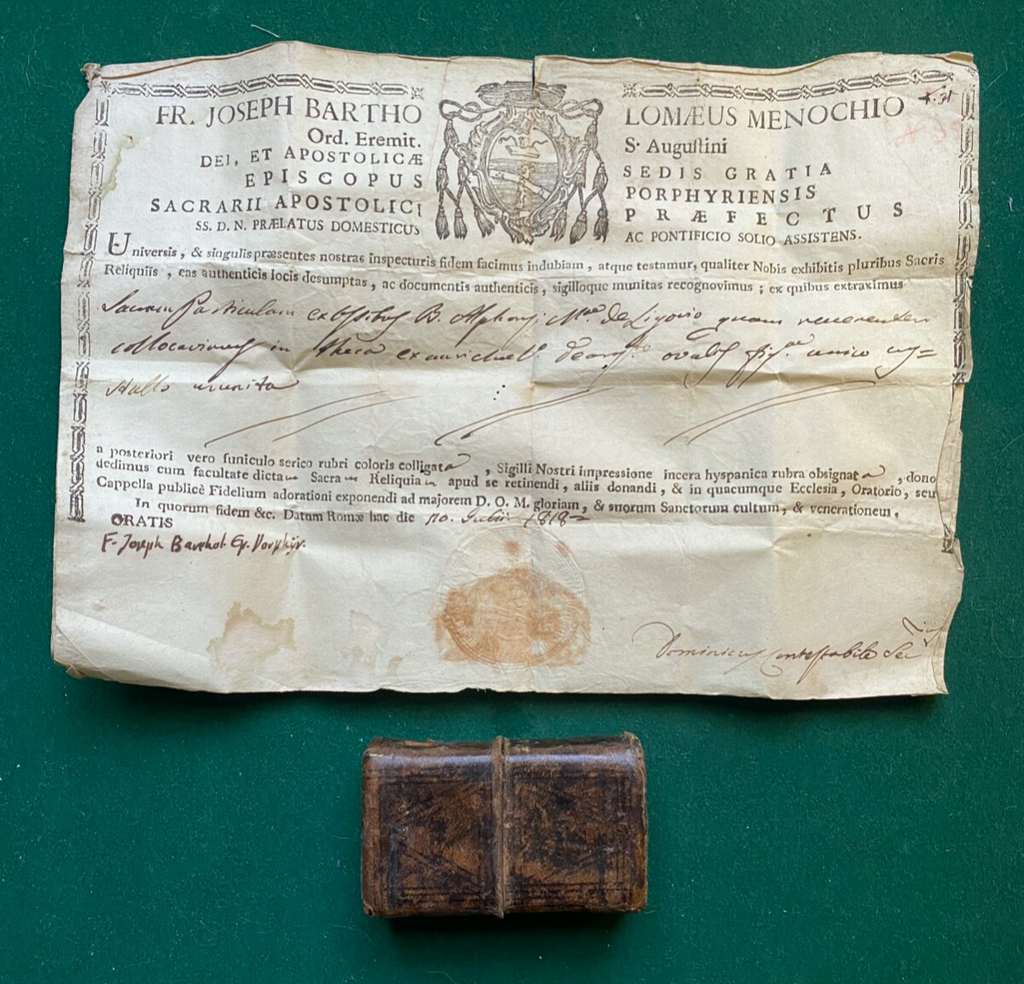 FR. JOSEPH BARTHO LOMÆUS MENOCHIO
Ord. Eremit. S. Augustini
DEI, ET APOSTOLICÆ SEDIS GRATIA
EPISCOPUS PORPHYRIENSIS
SACRARII APOSTOLICI PRÆFECTUS
SS. D. N. PRÆLATUS DOMESTICUS AC PONTIFICIO SOLIO ASSISTENS.
Universis, & singulis præsentes nostras inspecturis fidem facimus indubiam, atque testamur, qualiter Nobis exhibitis pluribus Sacris
Reliquiis, eas authenticis locis desumptas, ac documentis authenticis, sigilloque munitas recognovimus; ex quibus extraximus
Sacram Particulam ex Ossibus B. Alphonsi Mae de Ligorio quam reverenter
collocavimus in theca ex aurichal. ovalis fig.ae unico cry=
stallo munita
a posteriori vero funiculo serico rubri coloris colligata, Sigilli Nostri impressione in cera hyspanica rubra obsignata, dono
dedimus cum facultate dictam Sacram Reliquiam apud se retinendi, aliis donandi, & in quacumque Ecclesia, Oratorio, seu
Cappella publicè Fidelium adorationi exponendi ad majorem D. O. M. gloriam, & suorum Sanctorum cultum, & venerationem.
In quorum fidem &c. Datum Romæ hac die 10. Julii 1818
GRATIS
F. Joseph Barthol. Ep. Porphyr.
Dominicus Contestabile Sec